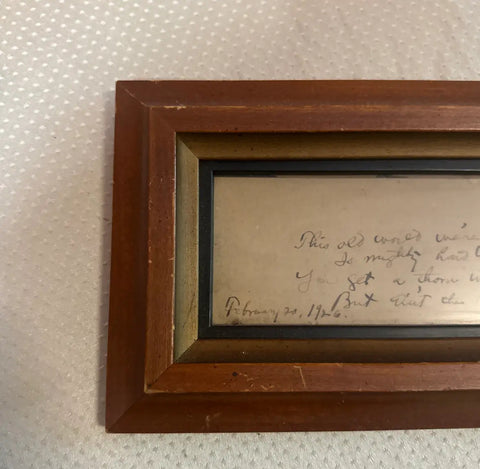 This old world we're
Is mighty hard t
You get a thorn w
But ain't the
February 20, 1926.